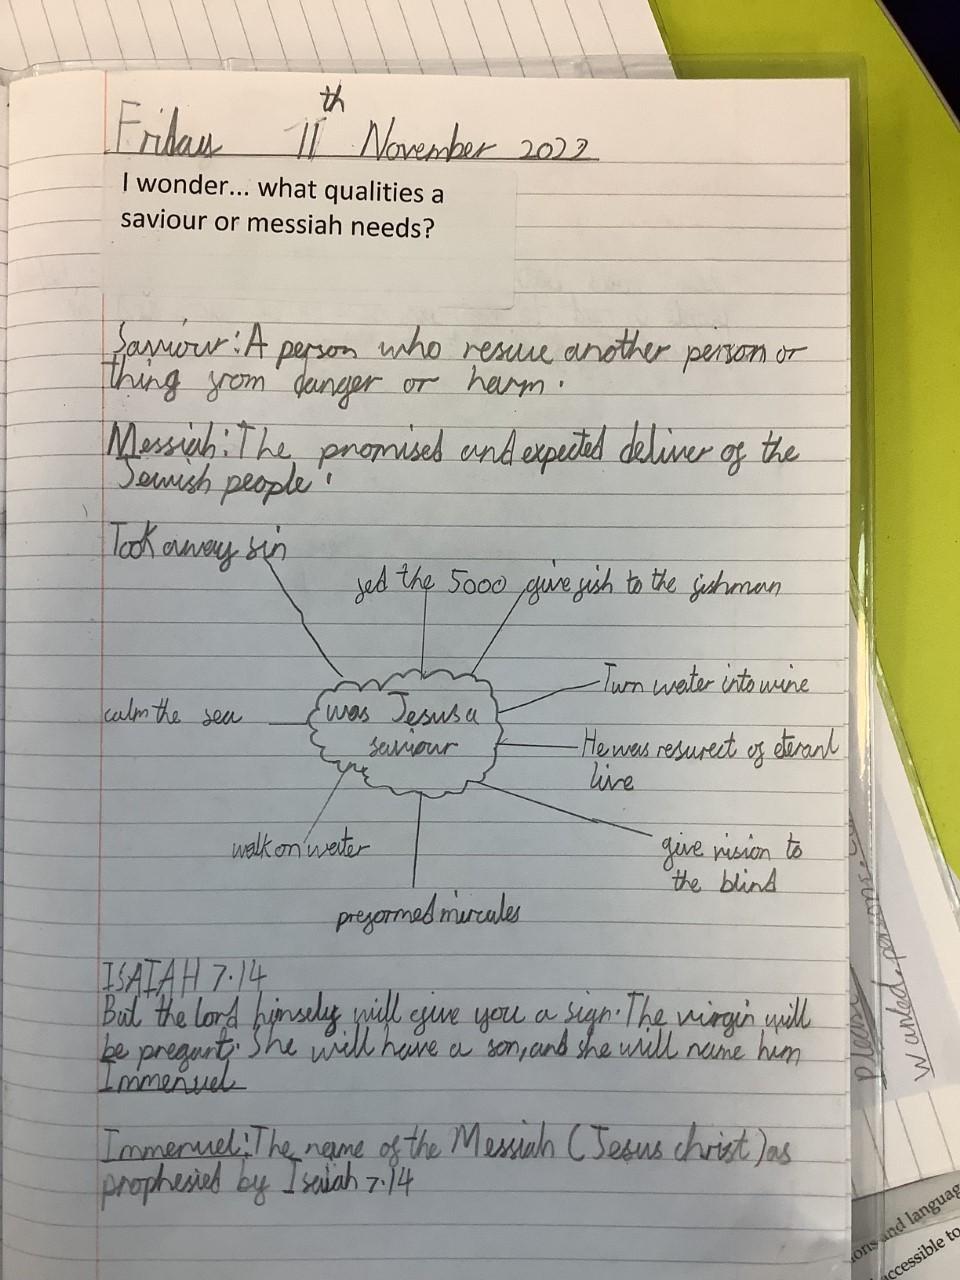 Friday 11th November 2022
I wonder... what qualities a
saviour or messiah needs?
Saviour: A person who rescue another person or
thing from danger or harm.
Messiah: The promised and expected deliver of the
Jewish people.
Took away sin
fed the 5000
give fish to the fishman
Turn water into wine
calm the sea
was Jesus a
saviour
He was resurect of eteranl
live
walk on water
give vision to
the blind
preformed mircules
ISAIAH 7.14
But the lord himself will give you a sign. The virgin will
be pregant. She will have a son, and she will name him
Immenuel
Immenuel: The name of the Messiah (Jesus christ) as
prophesied by Isaiah 7.14
please
ions and languag
accessible to